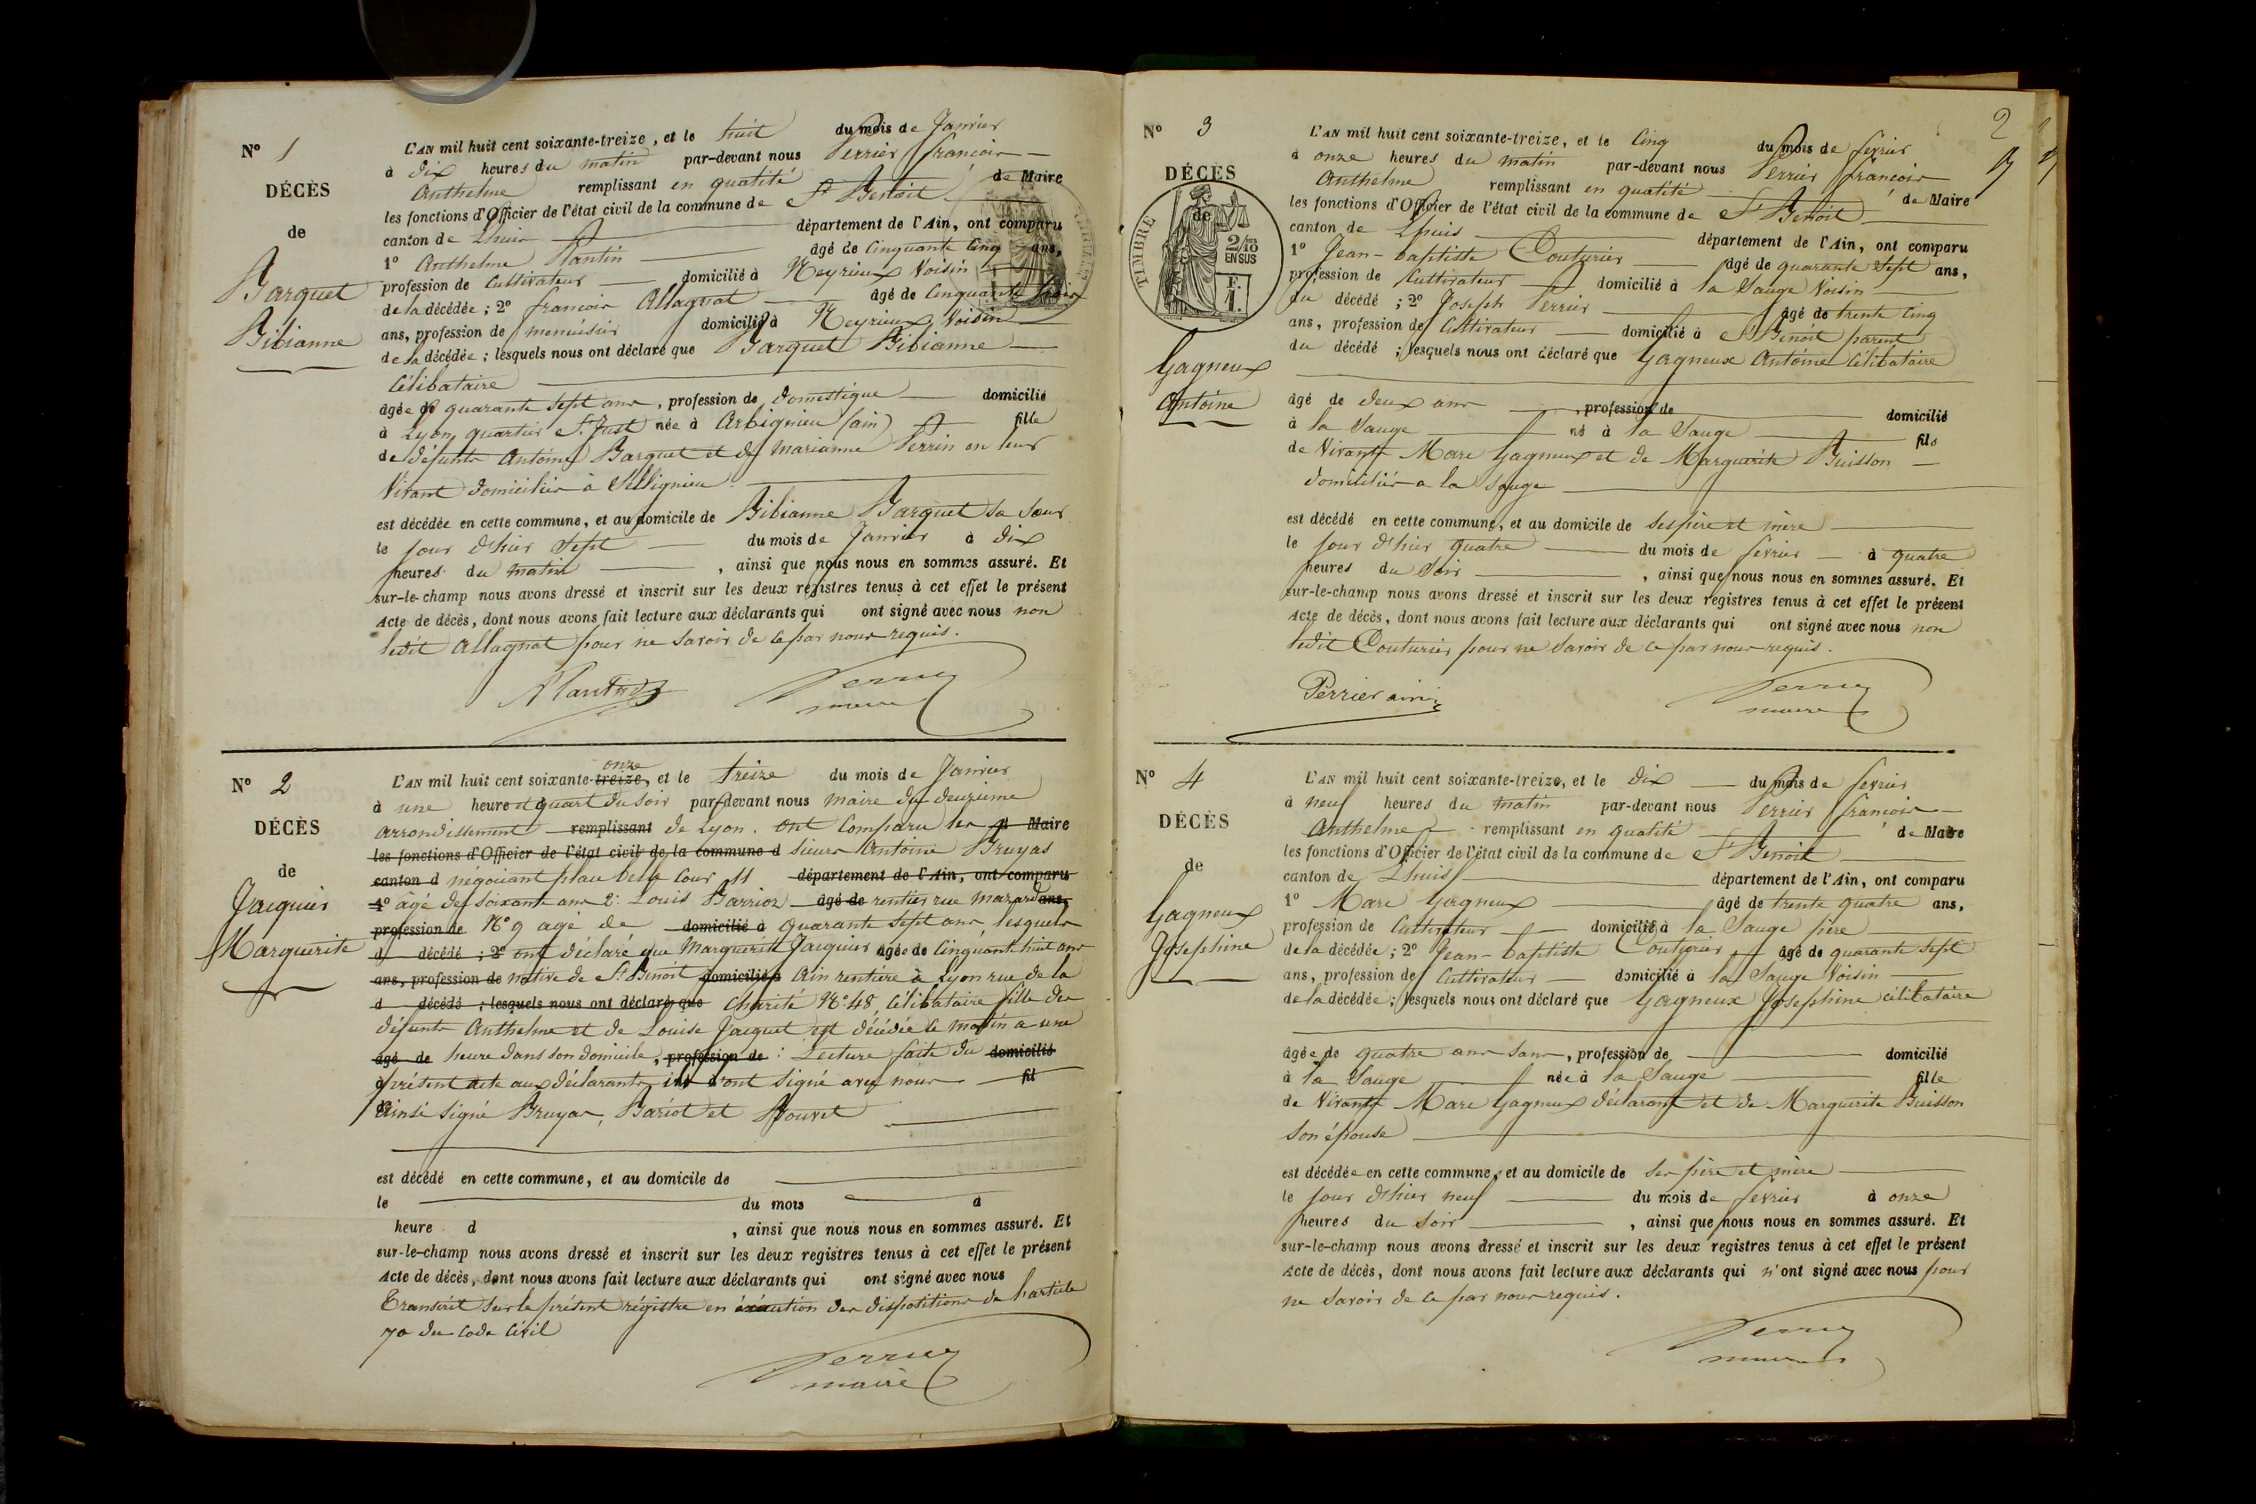 N° 1
DÉCÈS
de
Barquet
Bibianne
L'AN mil huit cent soixante-treize, et le huit du mois de Janvier
à dix heures du matin par-devant nous Perrier françois
Anthelme remplissant en qualité de Maire
les fonctions d'Officier de l'état civil de la commune de St Benoit
canton de Lhuis département de l'Ain, ont comparu
1° Anthelme Plantin âgé de Cinquante Cinq ans,
profession de Cultivateur domicilié à Neyrieux Voisin
de la décédée ; 2° françois Allagnat âgé de Cinquante trois
ans, profession de menuisier domicilié à Neyrieux Voisin
de la décédée ; lesquels nous ont déclaré que Barquet Bibianne
Célibataire
âgée de quarante sept ans, profession de domestique domicilié
à Lyon quartier St Just née à Arbignieu (ain) fille
de défunts Antoine Barquet et de marianne Perrin en leur
Vivant domiciliés à Sillignieu
est décédée en cette commune, et au domicile de Bibianne Barquet sa sœur
le jour d'hier Sept du mois de Janvier à dix
heures du matin , ainsi que nous nous en sommes assuré. Et
sur-le-champ nous avons dressé et inscrit sur les deux registres tenus à cet effet le présent
Acte de décès, dont nous avons fait lecture aux déclarants qui ont signé avec nous non
ledit Allagnat pour ne Savoir de ce par nous requis.
Plantin Perrier
maire
N° 2
DÉCÈS
de
Jacquier
Marguerite
onze
L'AN mil huit cent soixante-treize, et le treize du mois de Janvier
à une heure et quart du soir par-devant nous maire du deuxième
arrondissement remplissant de Lyon. Ont Comparu les Maire
les fonctions d'Officier de l'état civil de la commune d sieurs Antoine Bruyas
canton d negociant place belle Cour 11 département de l'Ain, ont comparu
1° âgé de soixante ans 2° Louis Barrioz âgé de rentier rue mazard ans,
profession de N° 9 agé de domicilié à quarante sept ans lesquels
d décédé ; 2° ont déclaré que Marguerite Jacquier âgée de Cinquante huit ans
ans, profession de native de St Benoit domicilié à Ain rentière à Lyon rue de la
d décédé ; lesquels nous ont déclaré que Charité N° 48, Célibataire fille des
défunts Anthelme et de Louise Jacquet est décédée Ce matin a une
âgé de heure dans son domicile, profession de : Lecture faite du domicilié
à présent acte aux déclarants ils l'ont signé avec nous fil
de Ainsi signé Bruyas, Bariot et Bouvet
est décédé en cette commune, et au domicile de
le du mois à
heure d , ainsi que nous nous en sommes assuré. Et
sur-le-champ nous avons dressé et inscrit sur les deux registres tenus à cet effet le présent
Acte de décès, dont nous avons fait lecture aux déclarants qui ont signé avec nous
Transcrit sur le présent régistre en éxécution des dispositions de l'article
70 du Code Civil
Perrier
maire
2
N° 3
DÉCÈS
de
TIMBRE
2/10 EN SUS
F. 1.
Gagneux
Antoine
L'AN mil huit cent soixante-treize, et le Cinq du mois de fevrier
à onze heures du matin par-devant nous Perrier françois
Anthelme remplissant en qualité de Maire
les fonctions d'Officier de l'état civil de la commune de St Benoit
canton de Lhuis département de l'Ain, ont comparu
1° Jean-baptiste Couturier âgé de quarante Sept ans,
profession de Cultivateur domicilié à la Sauge Voisin
du décédé ; 2° Joseph Perrier âgé de trente Cinq
ans, profession de Cultivateur domicilié à St Benoit parent
du décédé ; lesquels nous ont déclaré que Gagneux Antoine Célibataire
âgé de deux ans , profession de domicilié
à la Sauge né à la Sauge fils
de Vivants Marc Gagneux et de Marguerite Buisson
domiciliés a la Sauge
est décédé en cette commune, et au domicile de Ses père et mère
le jour d'hier quatre du mois de fevrier à quatre
heures du Soir , ainsi que nous nous en sommes assuré. Et
sur-le-champ nous avons dressé et inscrit sur les deux registres tenus à cet effet le présent
Acte de décès, dont nous avons fait lecture aux déclarants qui ont signé avec nous non
ledit Couturier pour ne Savoir de ce par nous requis.
Perrier ainé Perrier
maire
N° 4
DÉCÈS
de
Gagneux
Josephine
L'AN mil huit cent soixante-treize, et le dix du mois de fevrier
à neuf heures du matin par-devant nous Perrier françois
Anthelme remplissant en qualité de Maire
les fonctions d'Officier de l'état civil de la commune de St Benoit
canton de Lhuis département de l'Ain, ont comparu
1° Marc Gagneux âgé de trente quatre ans,
profession de Cultivateur domicilié à la Sauge père
de la décédée ; 2° Jean-baptiste Couturier âgé de quarante Sept
ans, profession de Cultivateur domicilié à la Sauge Voisin
de la décédée ; lesquels nous ont déclaré que Gagneux Josephine célibataire
âgée de quatre ans sans, profession de domicilié
à la Sauge née à la Sauge fille
de Vivants Marc Gagneux déclarant et de Marguerite Buisson
Son épouse
est décédée en cette commune, et au domicile de Ses père et mère
le jour d'hier neuf du mois de fevrier à onze
heures du Soir , ainsi que nous nous en sommes assuré. Et
sur-le-champ nous avons dressé et inscrit sur les deux registres tenus à cet effet le présent
Acte de décès, dont nous avons fait lecture aux déclarants qui n'ont signé avec nous pour
ne Savoir de ce par nous requis.
Perrier
maire